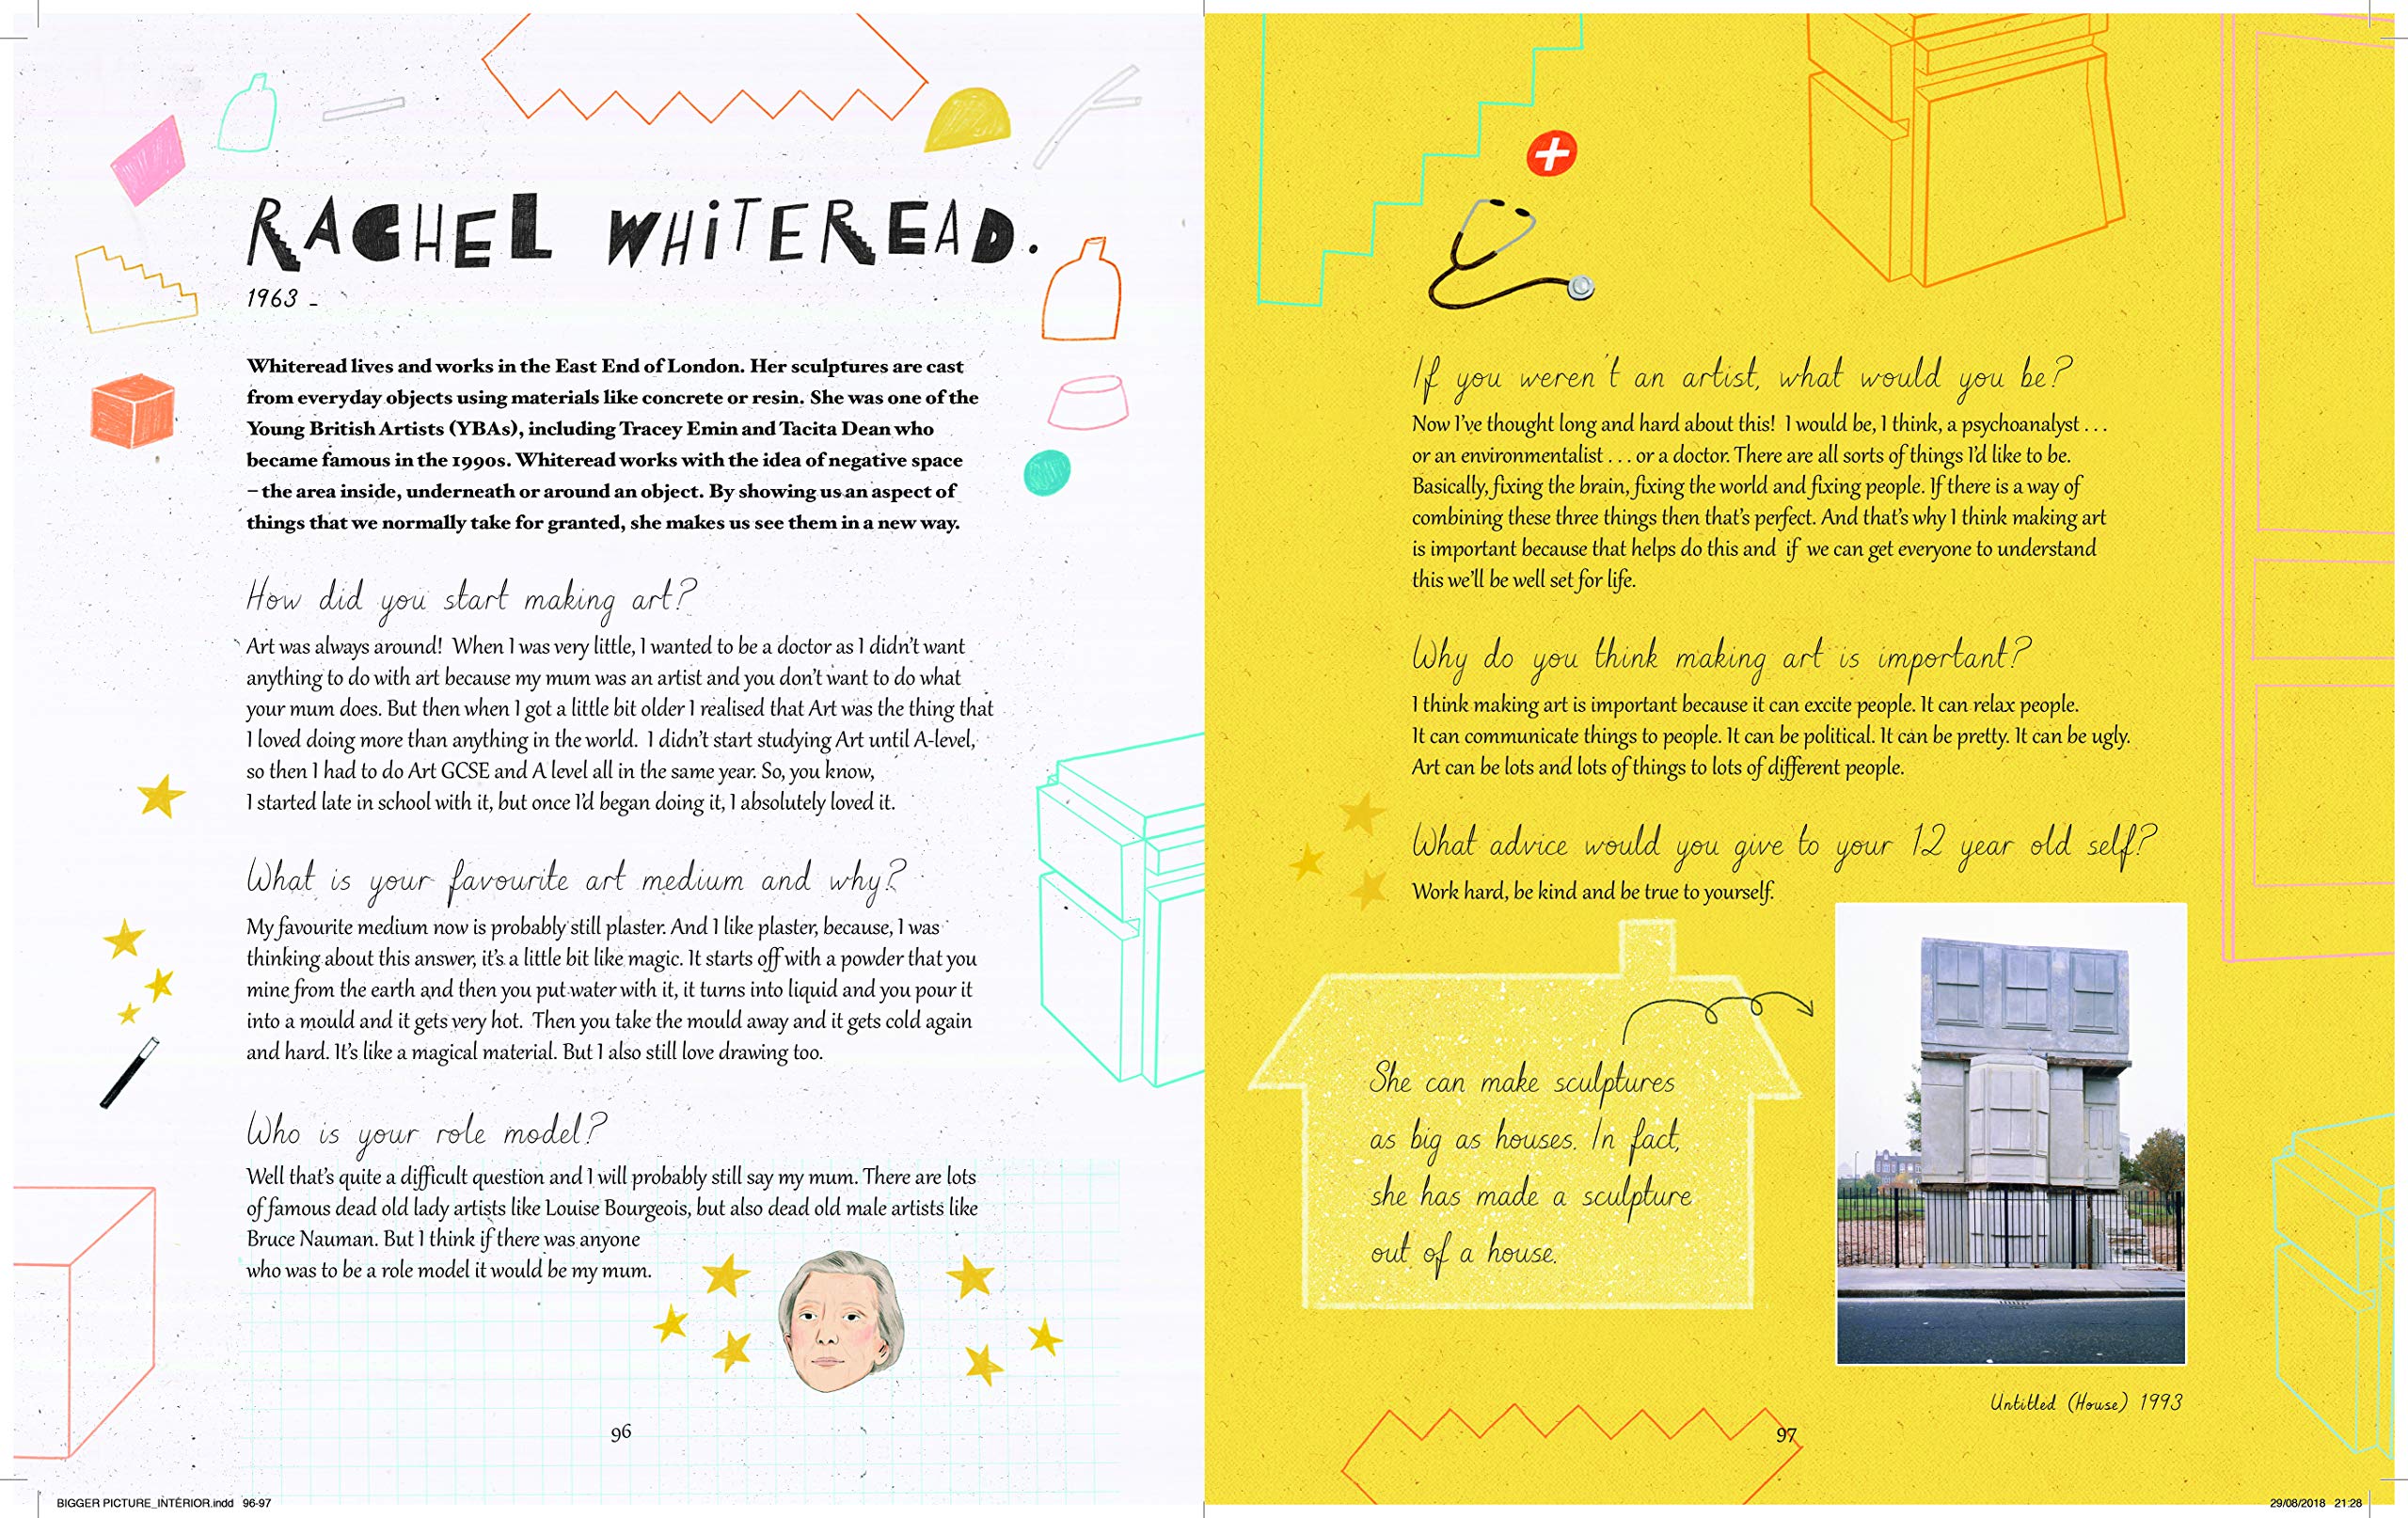 RACHEL WHiTEREAD.
1963 -
Whiteread lives and works in the East End of London. Her sculptures are cast
from everyday objects using materials like concrete or resin. She was one of the
Young British Artists (YBAs), including Tracey Emin and Tacita Dean who
became famous in the 1990s. Whiteread works with the idea of negative space
– the area inside, underneath or around an object. By showing us an aspect of
things that we normally take for granted, she makes us see them in a new way.
How did you start making art?
Art was always around! When I was very little, I wanted to be a doctor as I didn't want
anything to do with art because my mum was an artist and you don't want to do what
your mum does. But then when I got a little bit older I realised that Art was the thing that
I loved doing more than anything in the world. I didn't start studying Art until A-level,
so then I had to do Art GCSE and A level all in the same year. So, you know,
I started late in school with it, but once I'd began doing it, I absolutely loved it.
What is your favourite art medium and why?
My favourite medium now is probably still plaster. And I like plaster, because, I was
thinking about this answer, it's a little bit like magic. It starts off with a powder that you
mine from the earth and then you put water with it, it turns into liquid and you pour it
into a mould and it gets very hot. Then you take the mould away and it gets cold again
and hard. It's like a magical material. But I also still love drawing too.
Who is your role model?
Well that's quite a difficult question and I will probably still say my mum. There are lots
of famous dead old lady artists like Louise Bourgeois, but also dead old male artists like
Bruce Nauman. But I think if there was anyone
who was to be a role model it would be my mum.
96
BIGGER PICTURE_INTERIOR.indd 96-97
If you weren't an artist, what would you be?
Now I've thought long and hard about this! I would be, I think, a psychoanalyst . . .
or an environmentalist . . . or a doctor. There are all sorts of things I'd like to be.
Basically, fixing the brain, fixing the world and fixing people. If there is a way of
combining these three things then that's perfect. And that's why I think making art
is important because that helps do this and if we can get everyone to understand
this we'll be well set for life.
Why do you think making art is important?
I think making art is important because it can excite people. It can relax people.
It can communicate things to people. It can be political. It can be pretty. It can be ugly.
Art can be lots and lots of things to lots of different people.
What advice would you give to your 12 year old self?
Work hard, be kind and be true to yourself.
She can make sculptures
as big as houses. In fact,
she has made a sculpture
out of a house.
Untitled (House) 1993
97
29/08/2018 21:28